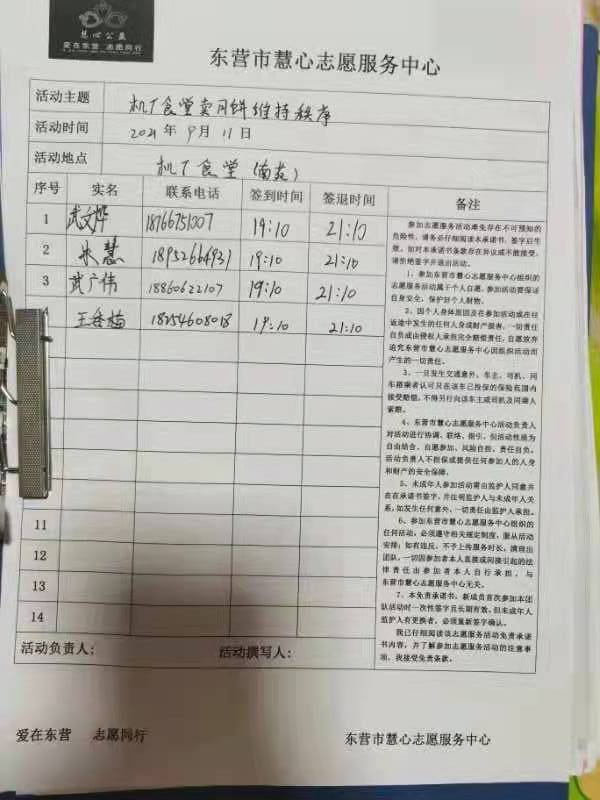 慧心公益
爱在东营 志愿同行
东营市慧心志愿服务中心
活动主题 机厂食堂卖月饼维持秩序
活动时间 2021年9月11日
活动地点 机厂食堂(南苑)
序号 实名 联系电话 签到时间 签退时间 备注
1 武文烨 18766751007 19:10 21:10
2 朱慧 18952664931 19:10 21:10
3 武广伟 18860622107 19:10 21:10
王香梅 18254608018 19:10 21:10
11
12
13
14
参加志愿服务活动难免存在不可预知的
危险性,请务必仔细阅读本承诺书,签字后生
效。如对本承诺书条款存在异议或不能接受,
请拒绝签字并退出活动。
1、参加东营市慧心志愿服务中心组织的
志愿服务活动属于个人自愿,参加活动需保证
自身安全,保护好个人财物。
2、因个人身体原因及在参加活动或在往
返途中发生的任何人身或财产损害,一切责任
自负或由侵权人承担完全赔偿责任,自愿放弃
追究东营市慧心志愿服务中心因组织活动而
产生的一切责任。
3、一旦发生交通意外,车主、司机、同
车搭乘者认可只在该车已投保的保险范围内
接受赔偿,不得另行向该车主或司机及同乘人
索赔。
4、东营市慧心志愿服务中心活动负责人
对活动进行协调、联络、指引,但活动性质为
自由结合、自愿参加、风险自担、责任自负。
活动负责人不担保或提供任何参加人的人身
和财产的安全保障。
5、未成年人参加活动需由监护人同意并
在在承诺书签字,并注明监护人与未成年人关
系,如发生任何意外,一切责任由监护人承担。
6、参加东营市慧心志愿服务中心组织的
任何活动,必须遵守相关规定制度,服从活动
安排;如有违反,不予上传服务时长,清理出
团队,一切因参加者本人直接或间接引起的法
律责任由参加者本人自行承担,与
东营市慧心志愿服务中心无关。
7、本免责承诺书,新成员首次参加本团
队活动时一次性签字且长期有效,但未成年人
监护人有更换者,必须重新签字确认。
我已仔细阅读该志愿服务活动免责承诺
书内容,并了解参加志愿服务活动的注意事
项,我接受免责条款。
活动负责人: 活动撰写人:
爱在东营 志愿同行 东营市慧心志愿服务中心